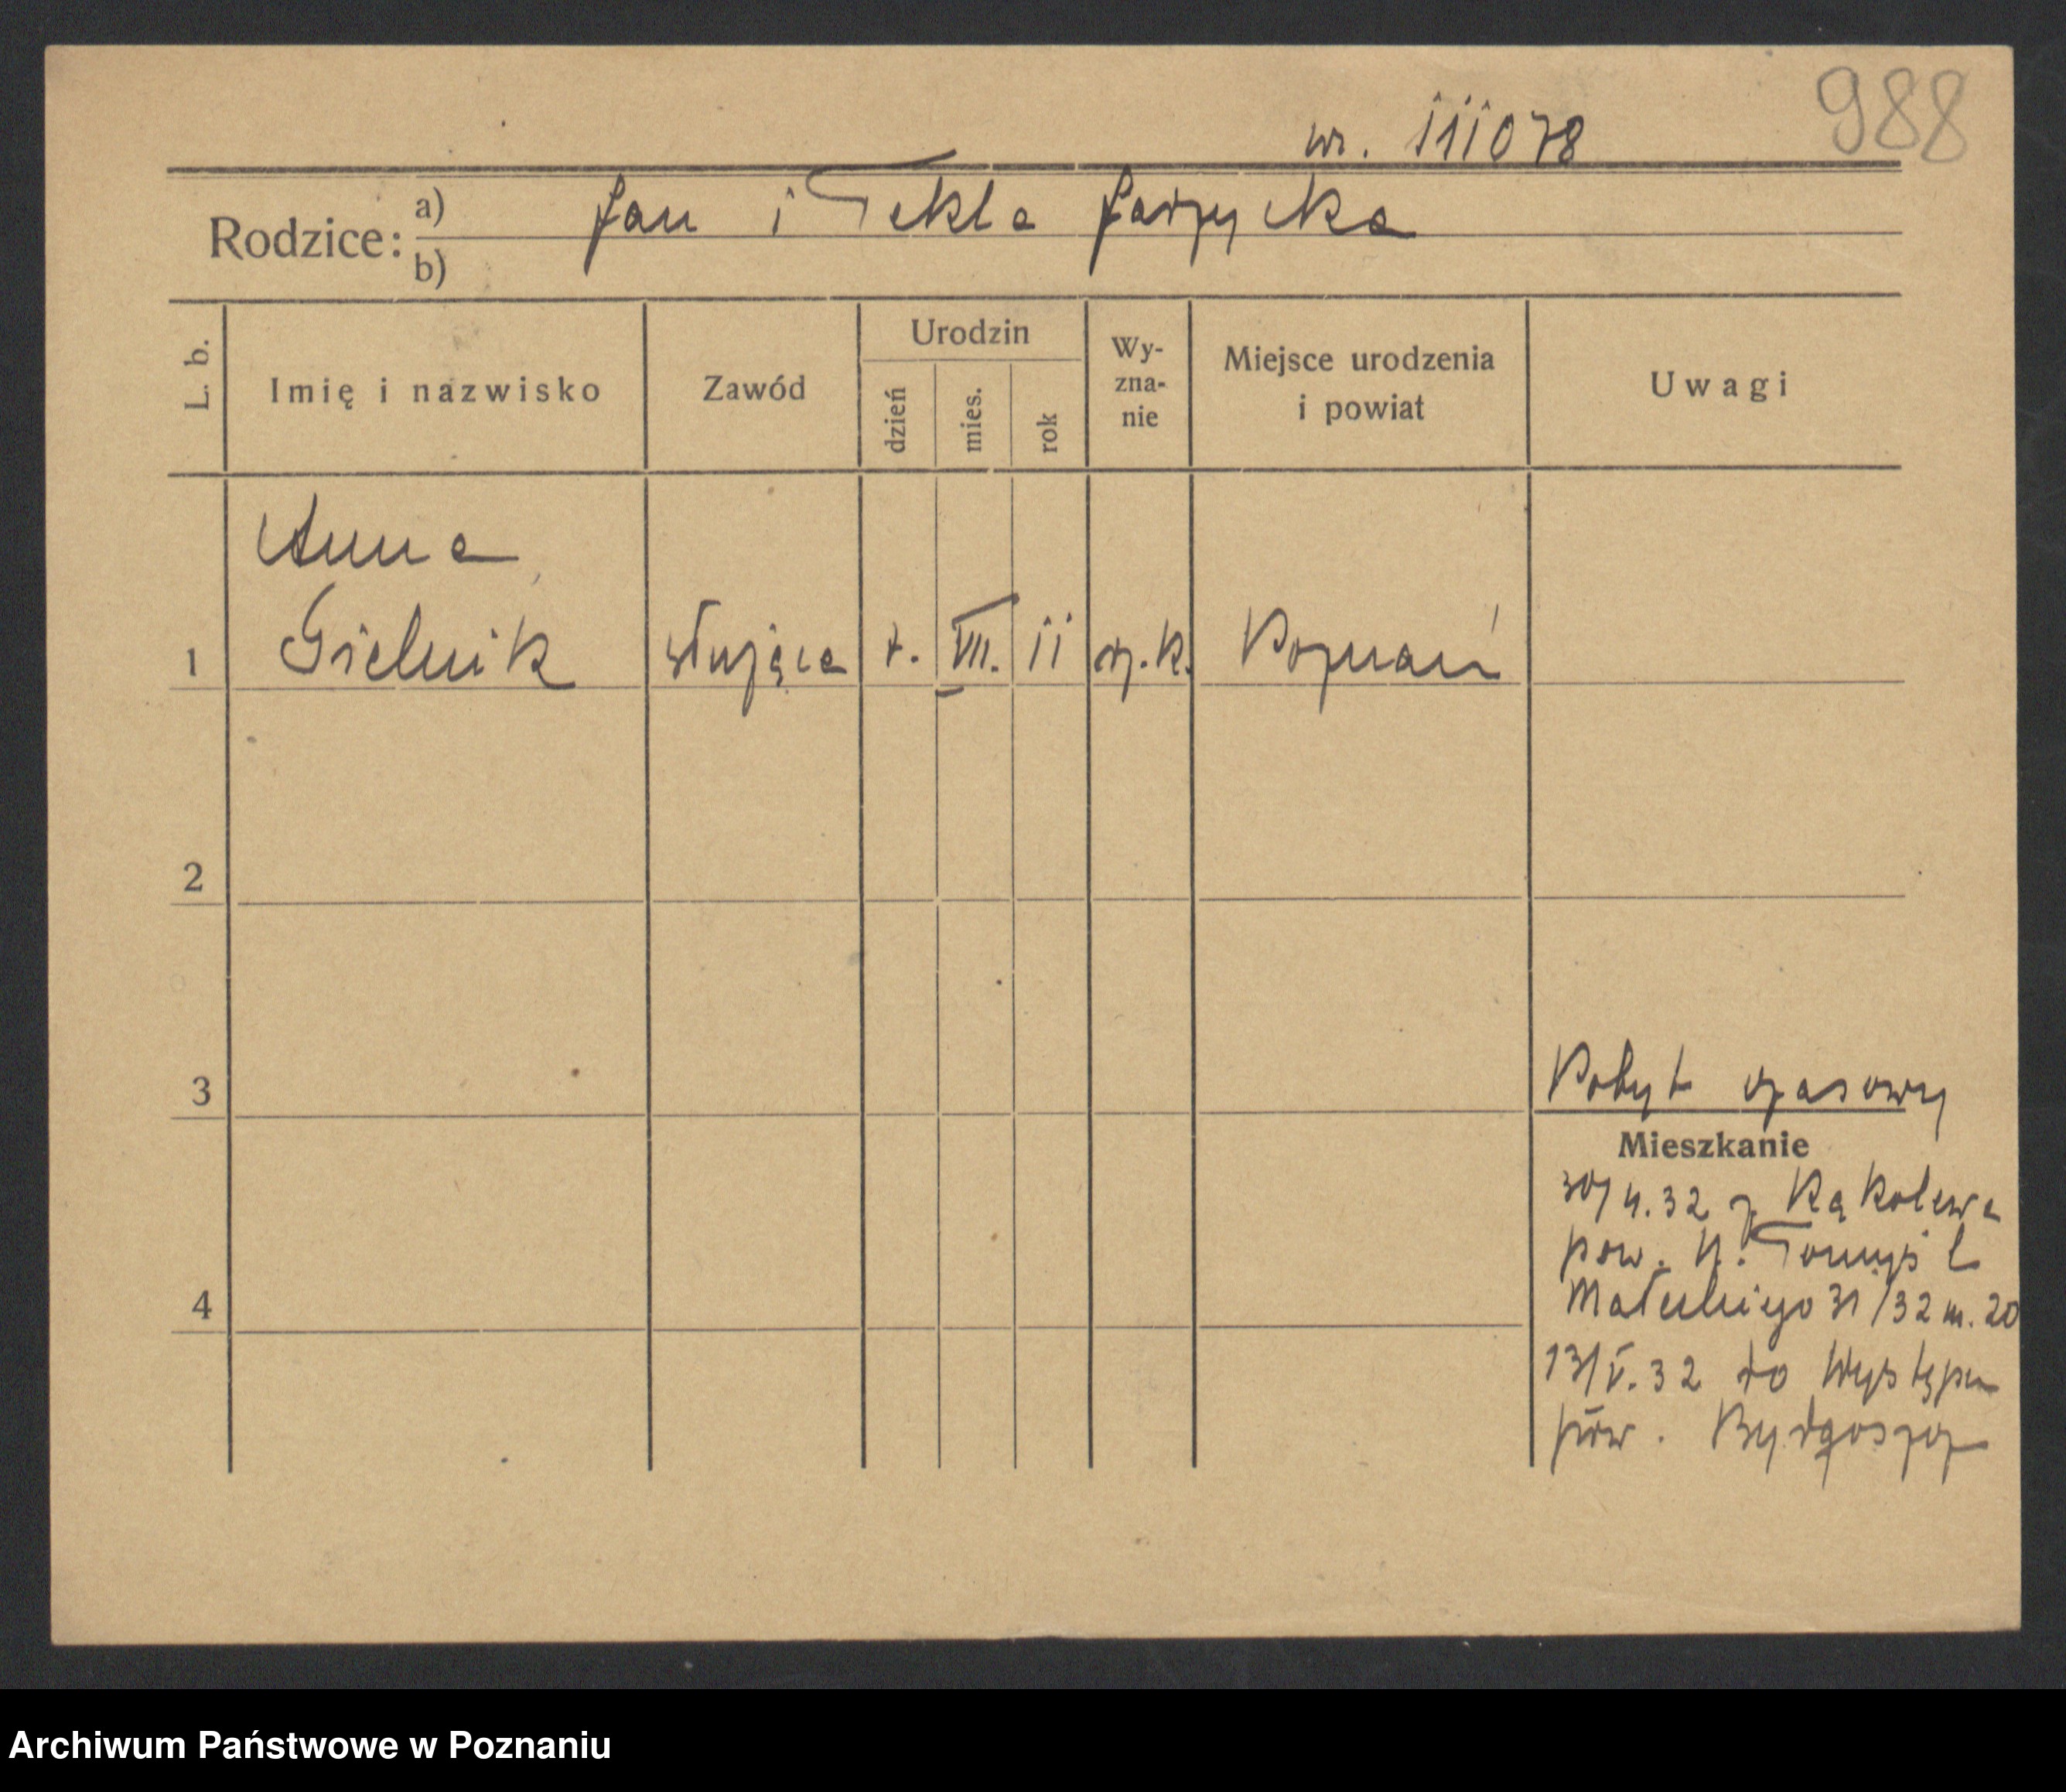 988
nr. 111078
Rodzice: a) Jan i Tekla Jarzycka
b)
L. b.
Imię i nazwisko
Zawód
Urodzin
dzień
mies.
rok
Wy-
zna-
nie
Miejsce urodzenia
i powiat
Uwagi
Anna
1 Gielnik służąca VII. 11 rz. k. Poznań
2
3
Pobyt czasowy
Mieszkanie
30/4. 32 z Kąkolewa
pow. N. Tomyśl
4
Małeckiego 31/32 m. 20
13/V. 32 do Występu
pow. Bydgoszcz
Archiwum Państwowe w Poznaniu